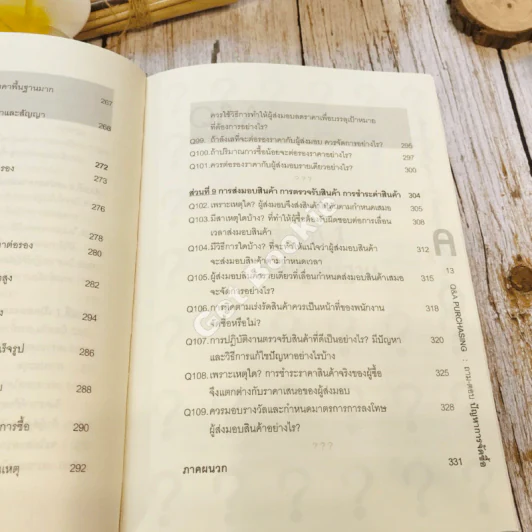 าคาพื้นฐานมาก
267
าและสัญญา
268
รอง
272
273
276
278
าต่อรอง
280
สูง
282
294
ร็จรูป
286
ย
288
การซื้อ
290
นเหตุ
292
ควรใช้วิธีการทำให้ผู้ส่งมอบลดราคาเพื่อบรรลุเป้าหมาย
ที่ต้องการอย่างไร?
Q99. ถ้าลังเลที่จะต่อรองราคากับผู้ส่งมอบ ควรจัดการอย่างไร? 295
Q100. ถ้าปริมาณการซื้อน้อยจะต่อรองราคาอย่างไร? 297
Q101. ควรต่อรองราคากับผู้ส่งมอบรายเดียวอย่างไร? 300
???
ส่วนที่ 9 การส่งมอบสินค้า การตรวจรับสินค้า การชำระค่าสินค้า 304
Q102. เพราะเหตุใด? ผู้ส่งมอบจึงส่งสินค้าไม่ทันตามกำหนดเสมอ 305
Q103. มีสาเหตุใดบ้าง? ที่ทำให้ผู้ซื้อต้องรับผิดชอบต่อการเลื่อน 308
เวลาส่งมอบสินค้า
Q104. มีวิธีการใดบ้าง? ที่จะทำให้แน่ใจว่าผู้ส่งมอบสินค้า 312
จะส่งมอบสินค้าตามกำหนดเวลา
Q105. ผู้ส่งมอบสินค้ารายเดียวที่เลื่อนกำหนดส่งมอบสินค้าเสมอ 315
จะจัดการอย่างไร?
Q106. การติดตามเร่งรัดสินค้าควรเป็นหน้าที่ของพนักงาน 318
จัดซื้อหรือไม่?
Q107. การปฏิบัติงานตรวจรับสินค้าที่ดีเป็นอย่างไร? มีปัญหา 320
และวิธีการแก้ไขปัญหาอย่างไรบ้าง
Q108. เพราะเหตุใด? การชำระราคาสินค้าจริงของผู้ซื้อ 325
จึงแตกต่างกับราคาเสนอของผู้ส่งมอบ
Q109. ควรมอบรางวัลและกำหนดมาตรการการลงโทษ 328
ผู้ส่งมอบสินค้าอย่างไร?
???
ภาคผนวก 331
A
13
Q&A PURCHASING : ถาม-ตอบ ปัญหาการจัดซื้อ